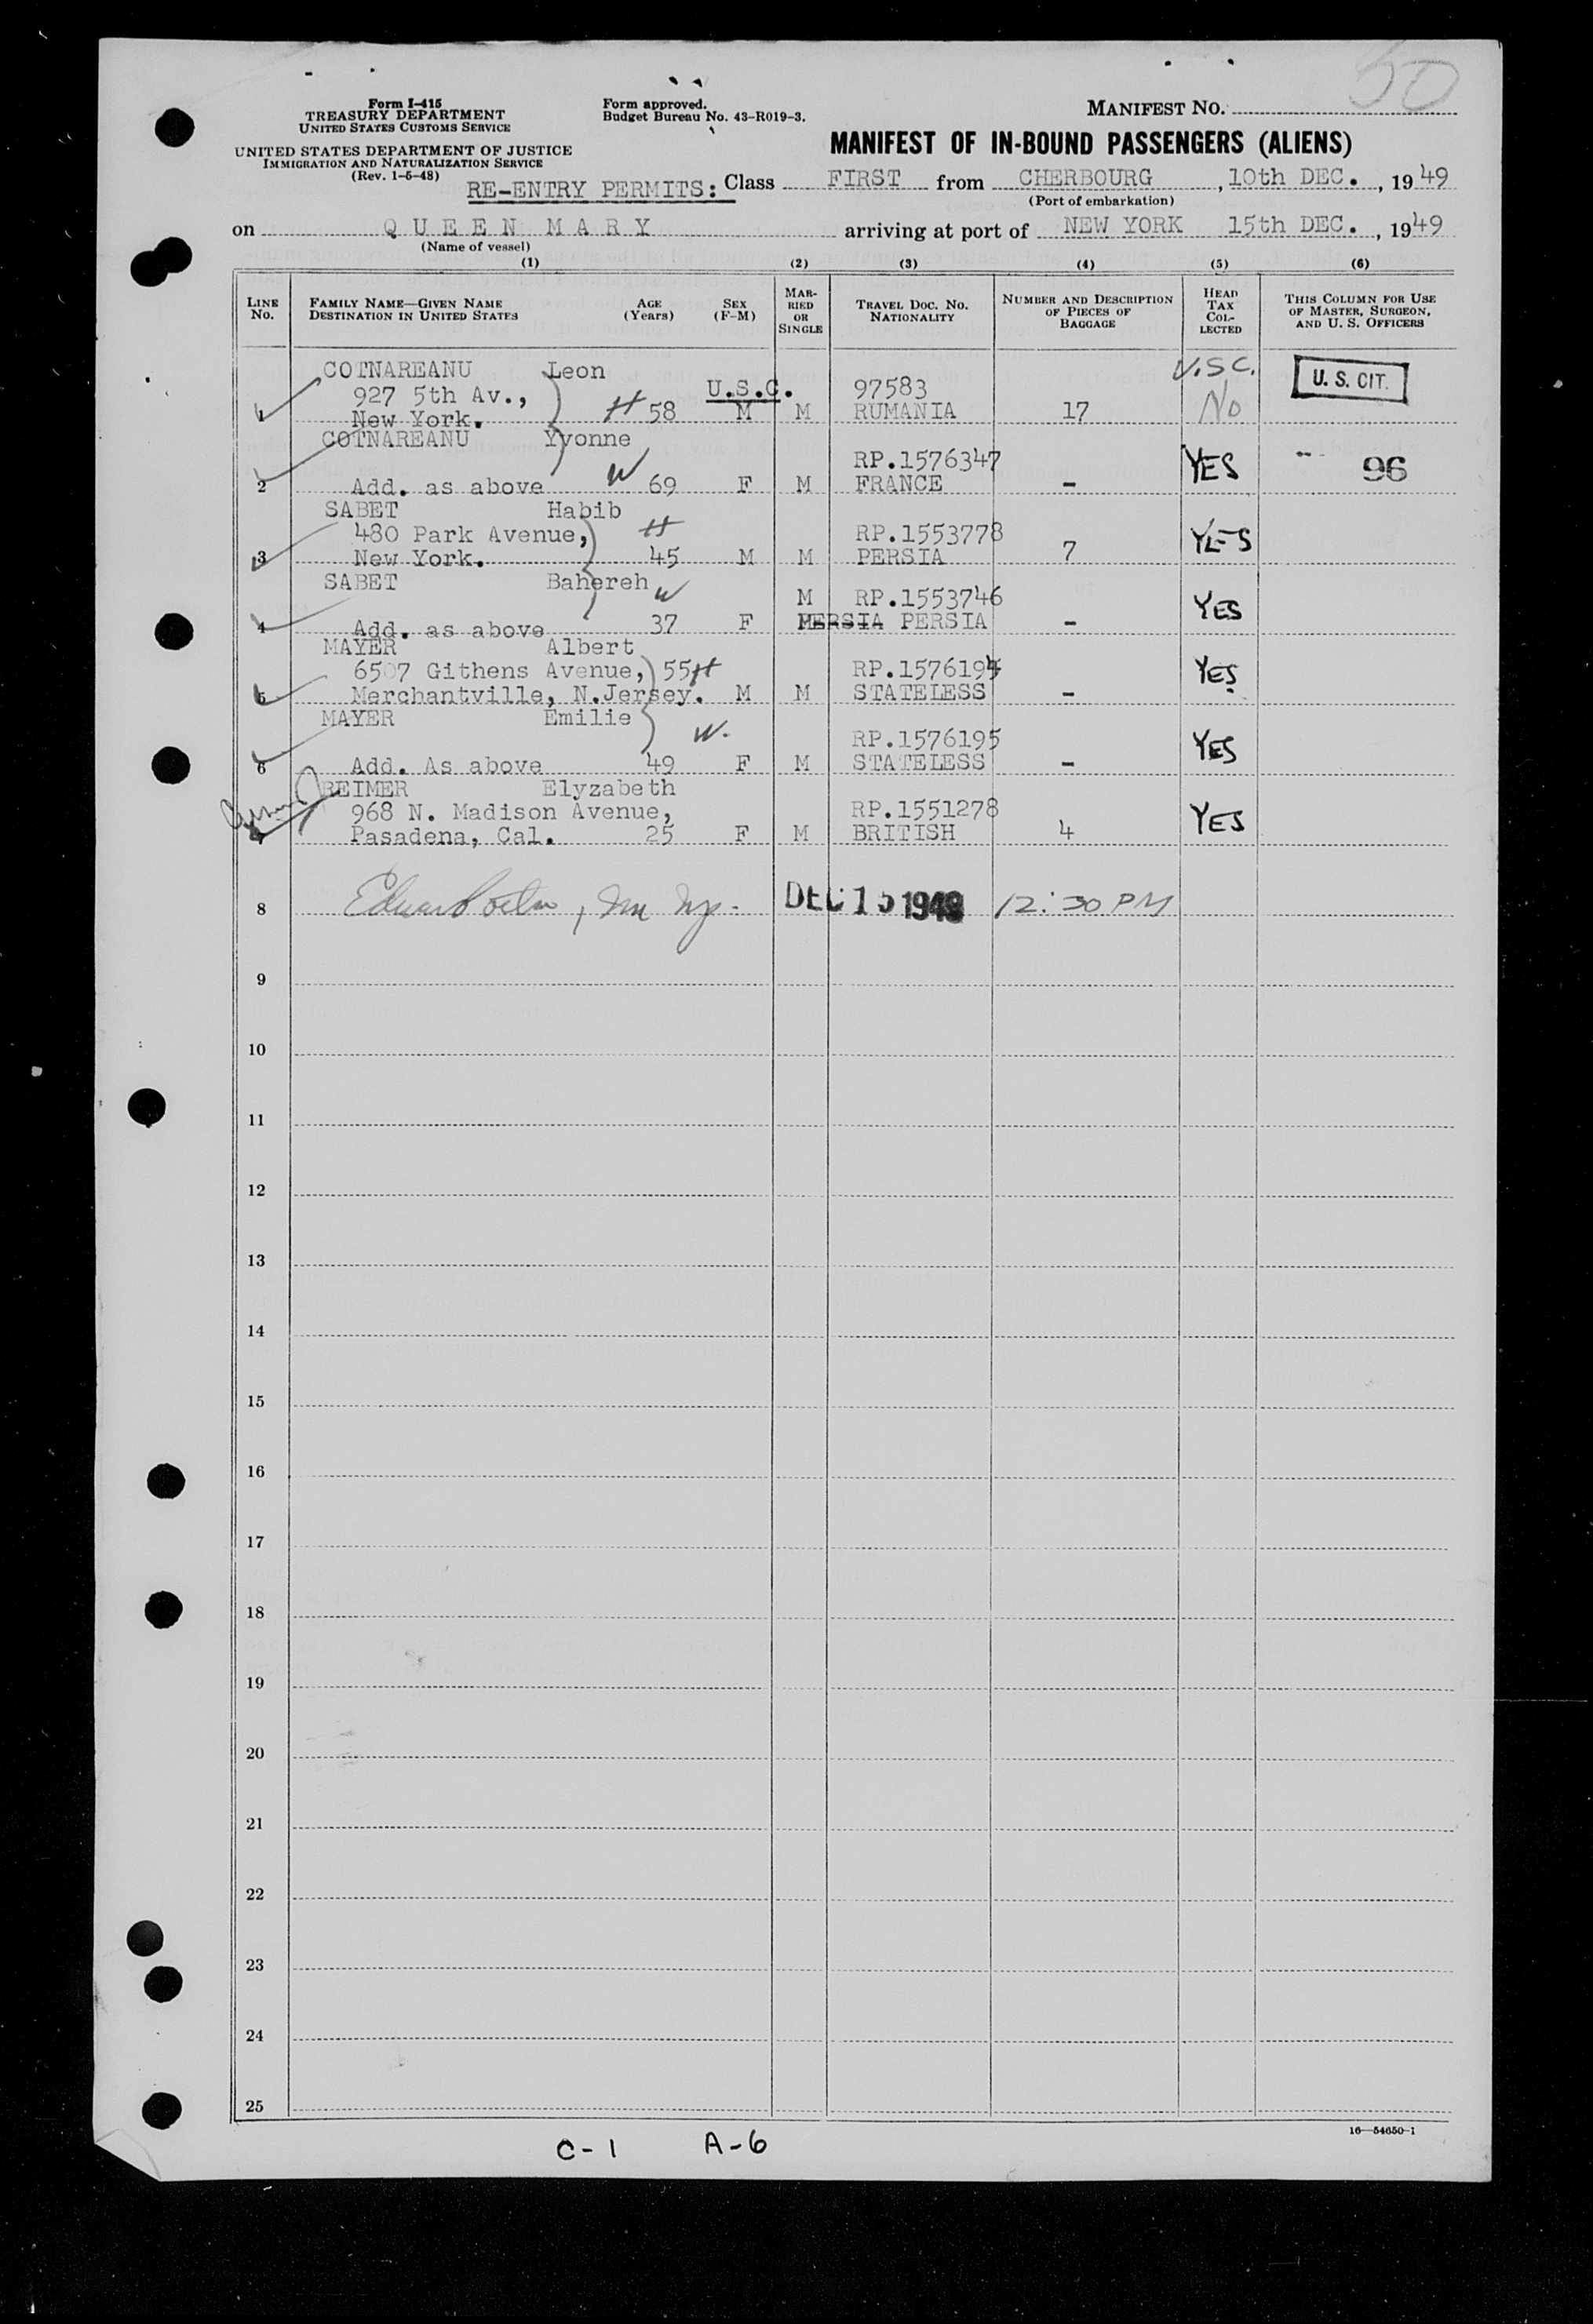 50
Form I-415
TREASURY DEPARTMENT
UNITED STATES CUSTOMS SERVICE
UNITED STATES DEPARTMENT OF JUSTICE
IMMIGRATION AND NATURALIZATION SERVICE
(Rev. 1-5-48)
Form approved.
Budget Bureau No. 43-R019-3.
MANIFEST NO.
MANIFEST OF IN-BOUND PASSENGERS (ALIENS)
RE-ENTRY PERMITS: Class FIRST from CHERBOURG, 10th DEC., 1949
(Port of embarkation)
on QUEEN MARY arriving at port of NEW YORK 15th DEC., 1949
(Name of vessel)
(1) (2) (3) (4) (5) (6)
LINE No.
FAMILY NAME—GIVEN NAME
DESTINATION IN UNITED STATES
AGE (Years)
SEX (F-M)
MARRIED OR SINGLE
TRAVEL DOC. NO.
NATIONALITY
NUMBER AND DESCRIPTION OF PIECES OF BAGGAGE
HEAD TAX COLLECTED
THIS COLUMN FOR USE OF MASTER, SURGEON, AND U. S. OFFICERS
COTNAREANU Leon U.S.C. U. S. CIT.
927 5th Av., U.S.C. 97583
1 New York. H 58 M M RUMANIA 17 No
COTNAREANU Yvonne
RP.1576347 YES 96
2 Add. as above W 69 F M FRANCE -
SABET Habib
480 Park Avenue, H RP.1553778 YES
3 New York. 45 M M PERSIA 7
SABET Bahereh W
M RP.1553746 YES
4 Add. as above 37 F PERSIA -
MAYER Albert
6507 Githens Avenue, 55 H RP.1576194 YES
5 Merchantville, N.Jersey. M M STATELESS -
MAYER Emilie W.
RP.1576195 YES
6 Add. As above 49 F M STATELESS -
REIMER Elyzabeth
968 N. Madison Avenue, RP.1551278 YES
7 Pasadena, Cal. 25 F M BRITISH 4
8 DEC 15 1949 12:30 PM
9
10
11
12
13
14
15
16
17
18
19
20
21
22
23
24
25
16—54650-1
C-1 A-6